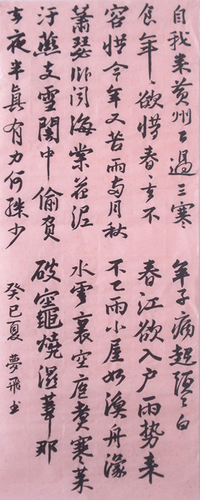 自我来黄州已過三寒
食年々欲惜春々去不
容惜今年又苦雨兩月秋
蕭瑟卧聞海棠花泥
汙燕支雪闇中偷負
去夜半真有力何殊少
年子病起頭已白
春江欲入户雨勢来
不已雨小屋如漁舟濛
水雲裏空庖煮寒菜
破竈燒濕葦那
癸巳夏 夢飛书